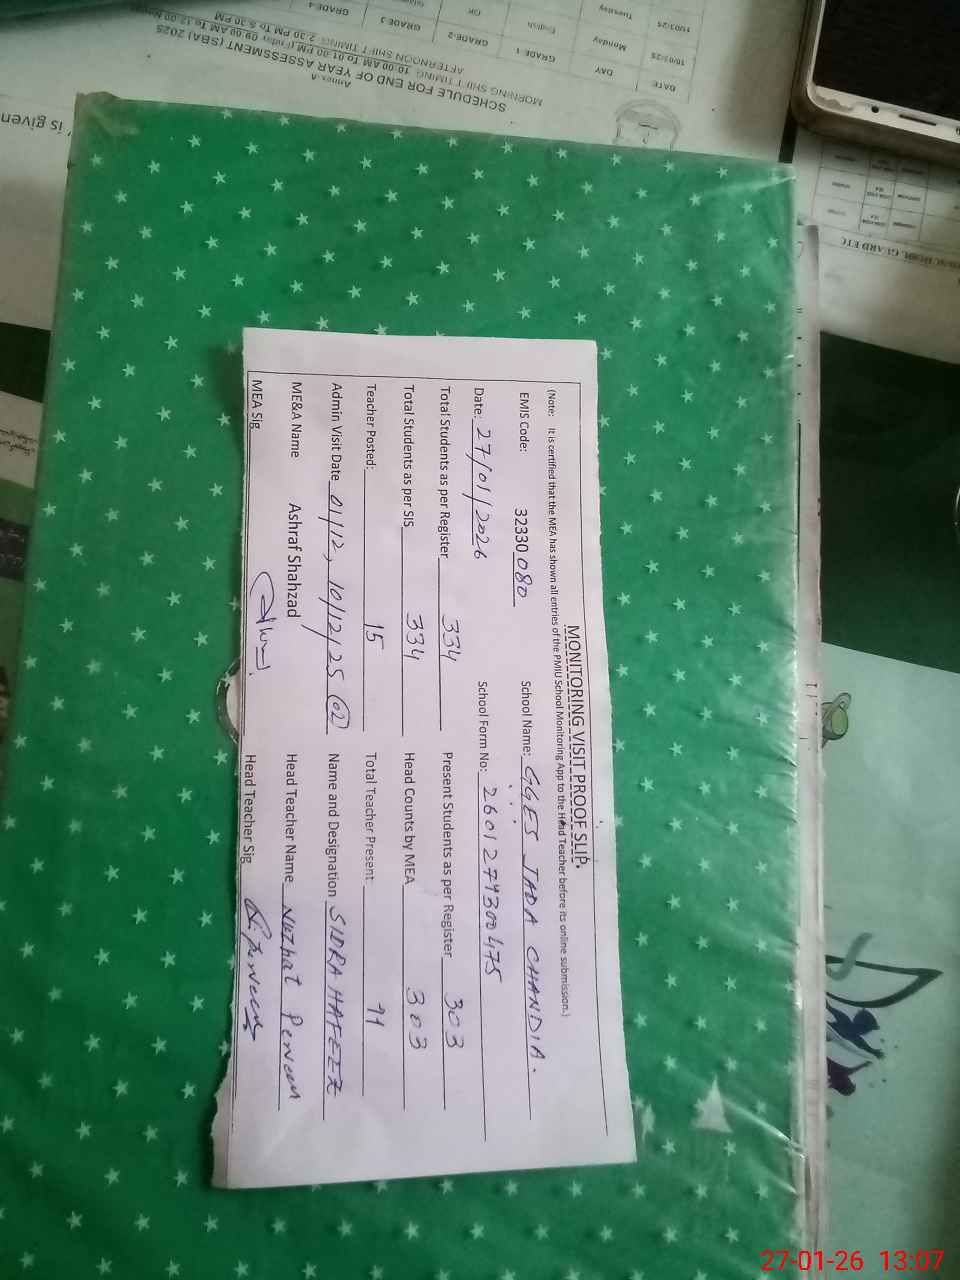 MONITORING VISIT PROOF SLIP.
(Note: It is certified that the MEA has shown all entries of the PMIU School Monitoring App to the Head Teacher before its online submission.)
EMIS Code: 32330 080 School Name: GGES JADA CHANDIA.
Date: 27/01/2026 School Form No: 2601274300475
Total Students as per Register 334 Present Students as per Register 303
Total Students as per SIS 334 Head Counts by MEA 303
Teacher Posted: 15 Total Teacher Present: 11
Admin Visit Date 01/12, 10/12/25 (02) Name and Designation SIDRA HAFEEZ
ME&A Name Ashraf Shahzad Head Teacher Name Nuzhat Perveen
MEA Sig Head Teacher Sig
Annex-A
SCHEDULE FOR END OF YEAR ASSESSMENT (SBA) 2025
MORNING SHIFT TIMING: 10:00 AM To 01:00 PM (Friday 09:00 AM To 12:00 Noon)
AFTERNOON SHIFT TIMING: 2:30 PM To 5:30 PM
DATE DAY GRADE-1 GRADE-2 GRADE-3 GRADE-4
10/03/25 Monday English GK
11/03/25 Tuesday
is given
GUARD ETC
27-01-26 13:07